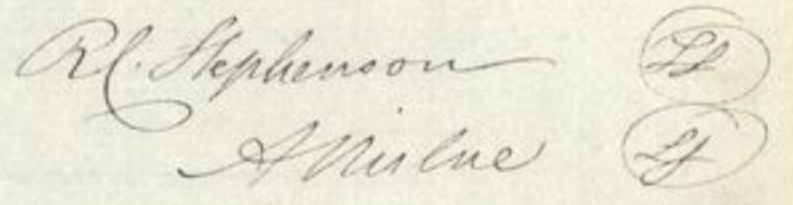 R.C. Stephenson LS
A Milne LS